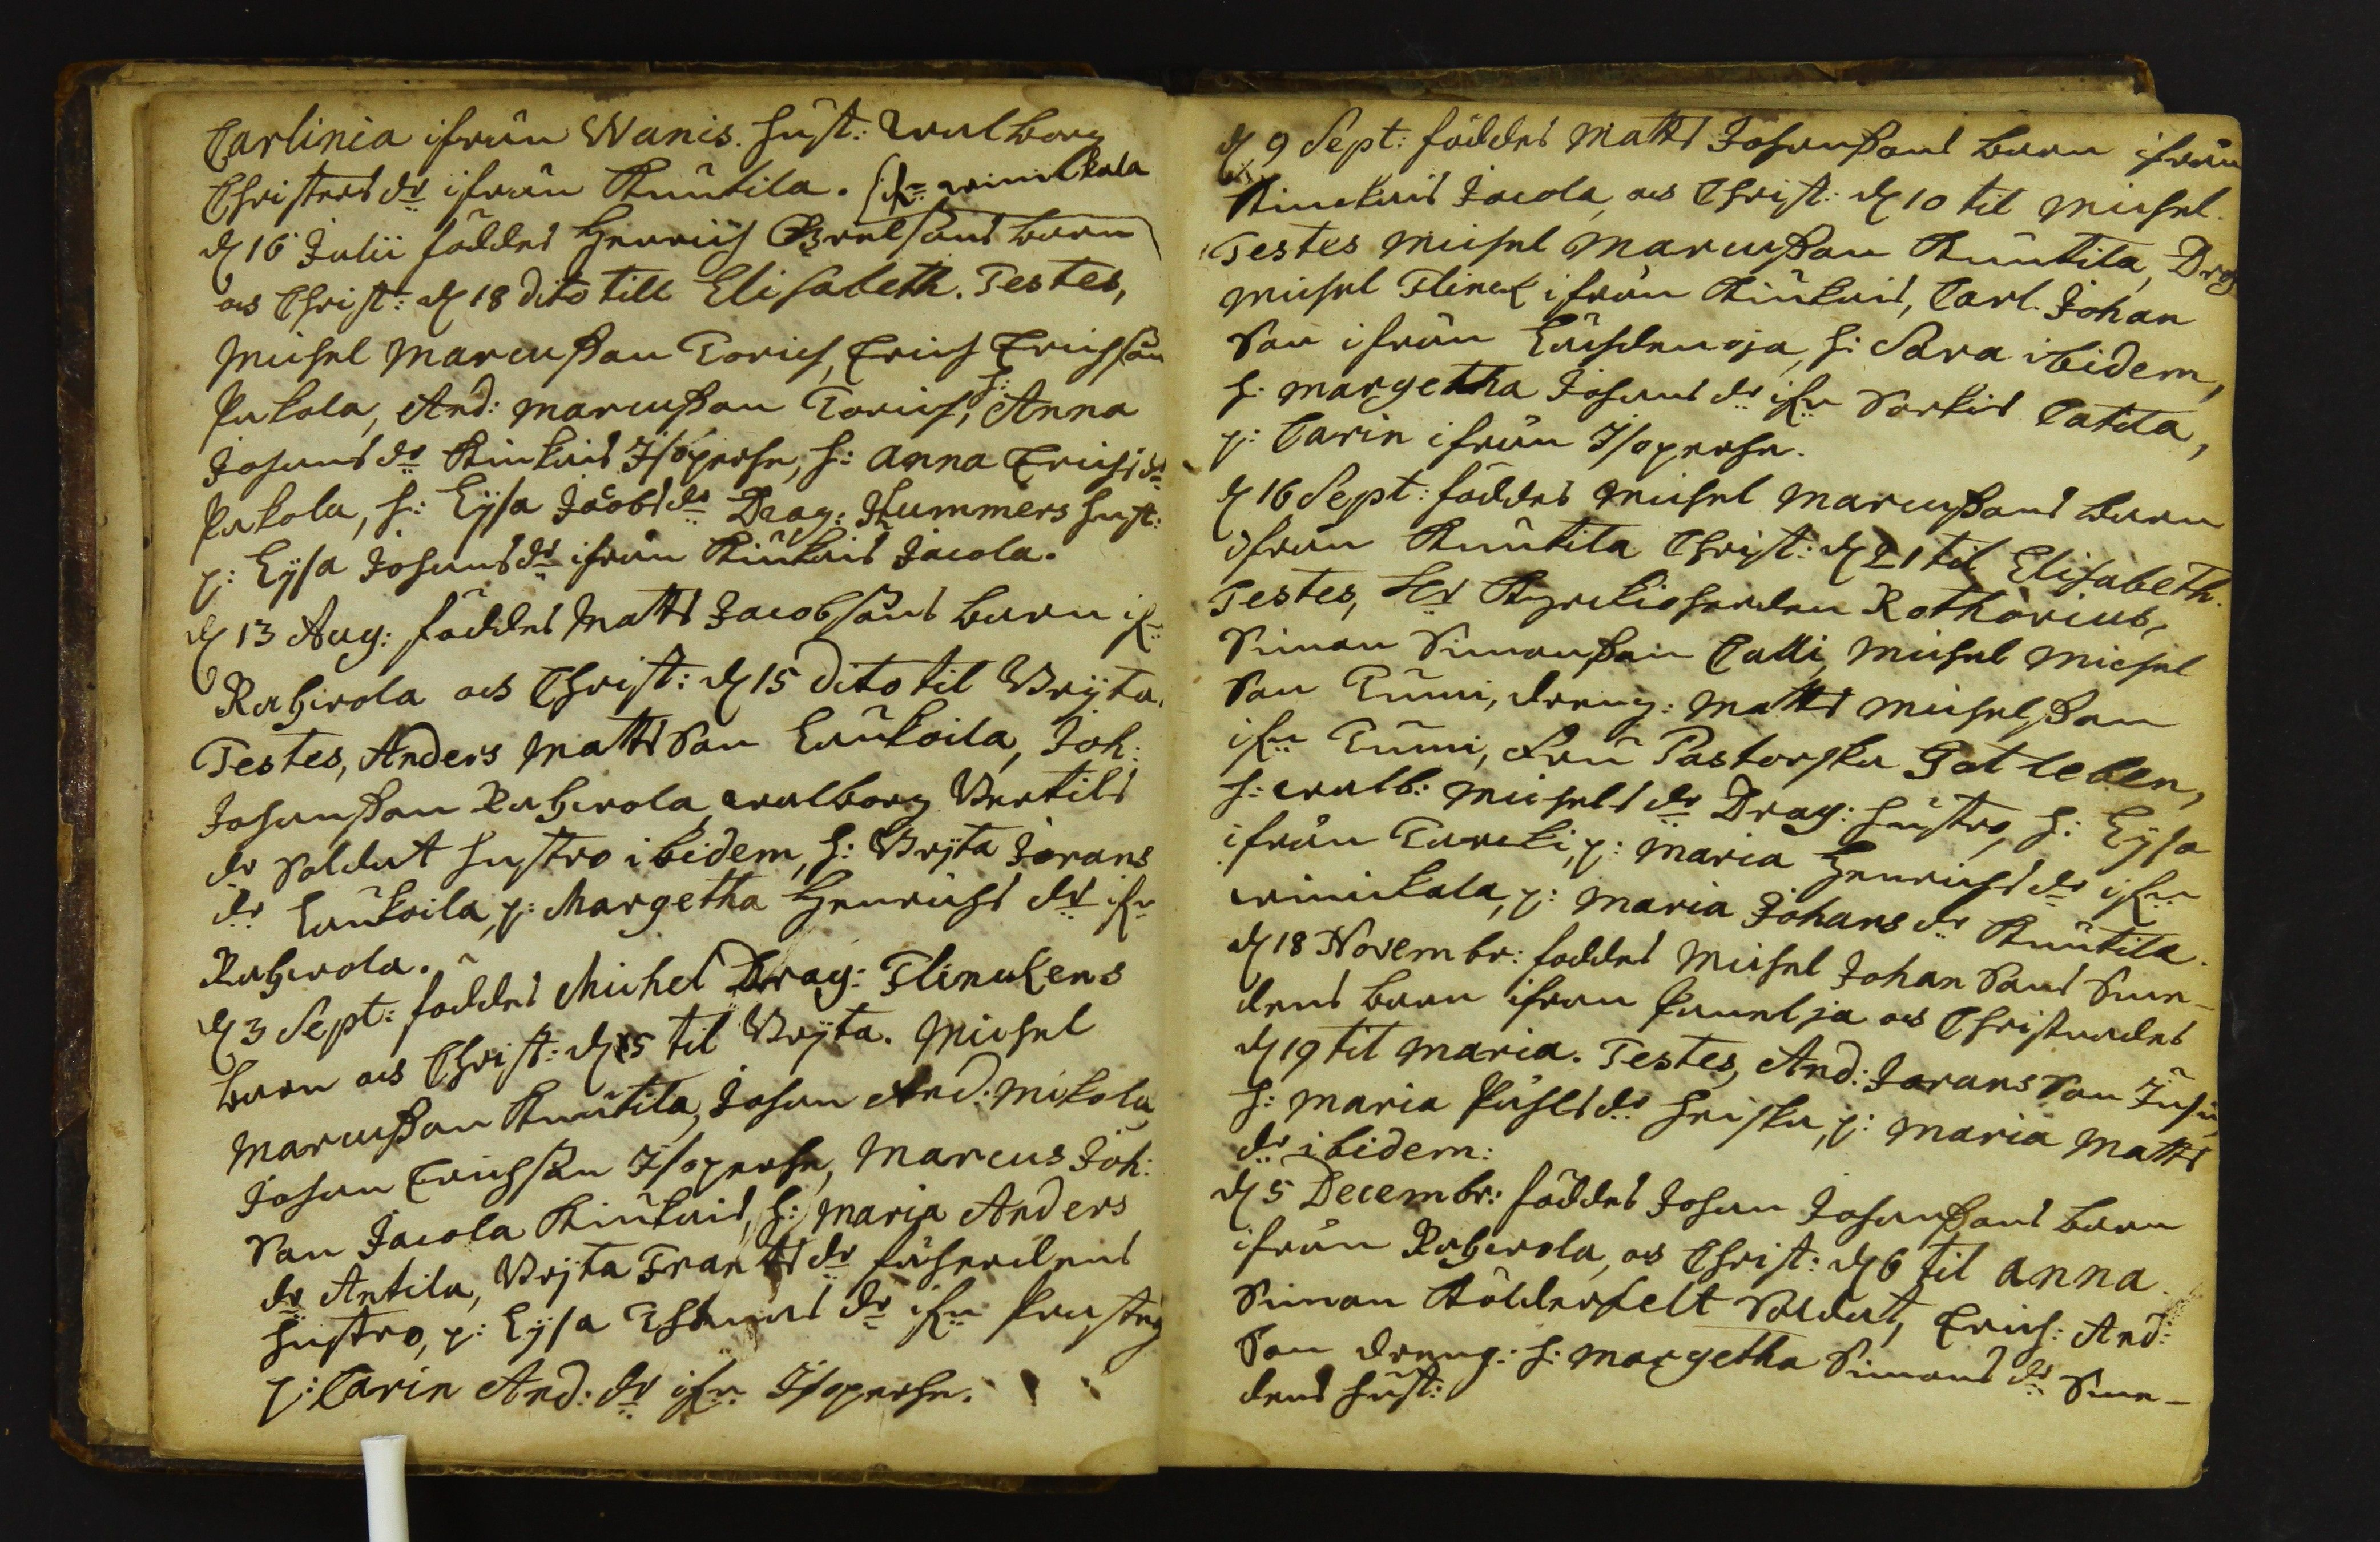 Carlinia ifrån Wanis. hust: walborg
Christers dr ifrån Knutila. (ifr: winickala
d 16 Julii föddes Henrich Grelssons barn
och Christ: d 18 dito till Elisabeth. Testes,
Michel Marcusson Torich, Erich Erichsson
Pukola, And: Marcusson Torich, h: Anna
Johans dr Kiukais Isoperhe, h: Anna Erichs dr
Pukola, h: Lijsa Jacobs dr Drag: Stummers hust:
p: Lijsa Johans dr ifrån Kiukais Jacola.
d 13 Aug: föddes Matts Jacobssons barn ifr:
Raherola och Christ: d 15 dito til Brijta.
Testes, Anders Mattsson Laukoila, Joh:
Johansson Raherola, walborg Bertils
dr Soldat hustro ibidem, h: Brijta Jörans
dr Laukoila, p: Margetha Henrichs dr ifr
Raherola.
d 3 Sept: föddes Michel Drag: Flinckens
barn och Christ: d 5 til Brijta. Michel
Marcusson Knutila, Johan And: Mikola
Johan Erichsson Isoperhe, Marcus Joh:
Son Jacola Kiukais, h: Maria Anders
dr Antila, Brijta Frants dr fäherdens
hustro, p: Lijsa Thomas dr ifrn
p: Carin And: dr ifrn Isoperhe.
d 9 Sept: föddes Matts Johanssons barn ifrån
Kiuckais Jacola, och Christ: d 10 til Michel.
Testes Michel Marcusson Knutila, Drag
Michel Flinck ifrån Kiukais, Carl Johan
Son ifrån Lähdenoja, h: Sara ibidem,
h: Margetha Johans dr ifrn Sorkis Catila,
p: Carin ifrån Isoperhe.
d 16 Sept: föddes Michel Marcussons barn
ifrån Knutila Christ: d 21 til Elisabeth.
Testes, Hr Kyrckioherden Rothovius,
Simon Simonsson Calli, Michel Michel
Son Tumi, dreng: Matts Michelsson
ifrn Tumi, Fru Pastorska Gotleben,
h: walb: Michels dr Drag: hustro, h: Lijsa
ifrån Turcki, p: Maria Henrichs dr ifrn
winickala, p: Maria Johans dr Knutila.
d 18 Novembr: föddes Michel Johan Sons Sme-
dens barn ifrån Panelja och Christnades
d 19 til Maria. Testes, And: Jörans Son
h: Maria Påhls dr Heiska, p: Maria Matts
dr ibidem:
d 5 Decembr: föddes Johan Johanssons barn
ifrån Raherola, och Christ: d 6 til Anna.
Simon Köllderfelt Soldat, Erich: And:
Son dreng: h: Margetha Simons dr Sme-
dens hust: